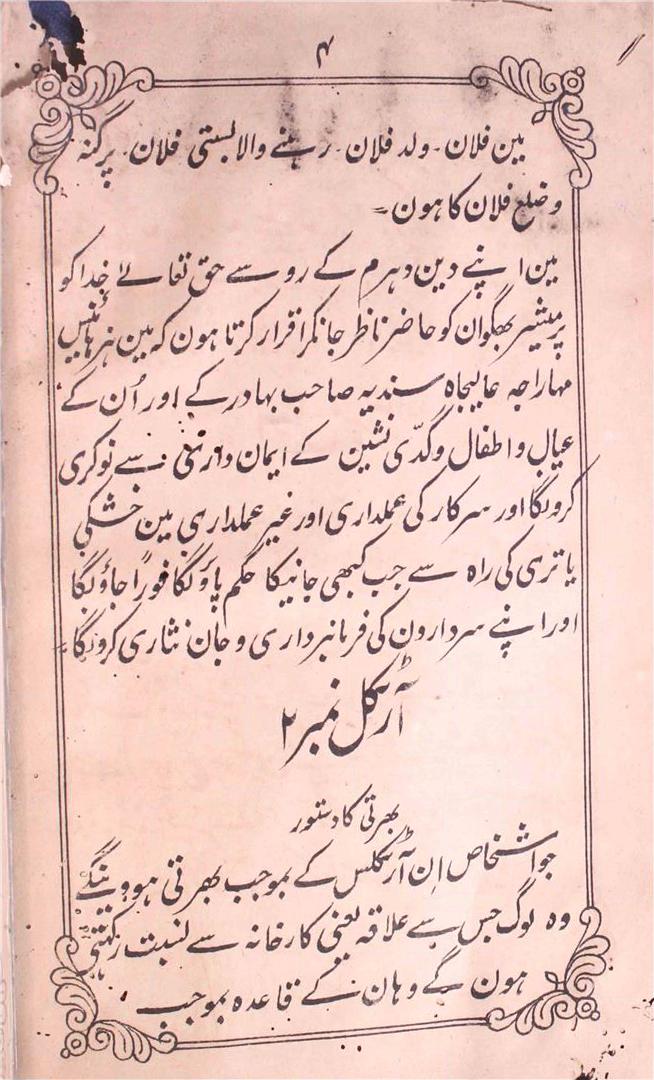 ۴
مین فلان۔ ولد فلان۔ رہنے والا بستی فلان۔ پرگنہ
و ضلع فلان کا ہون۔
مین اپنے دین دہرم کے رو سے حق تعالےٰ خدا کو
پرمیشر بھگوان کو حاضر ناظر جانکر اقرار کرتا ہون کہ مین ہز ہائنیس
مہاراجہ عالیجاہ سندیہ صاحب بہادر کے اور اُن کے
عیال و اطفال و گدّی نشین کے ایمان داری سے نوکری
کرونگا اور سرکار کی عملداری اور غیر عملداری مین خشکی
یا تری کی راہ سے جب کبھی جانیکا حکم پاؤنگا فوراً جاؤنگا
اور اپنے سردارون کی فرمانبرداری و جان نثاری کرونگا۔
آرٹکل نمبر ۲
بھرتی کا دستور
جو اشخاص اِن آرٹکلس کے بموجب بھرتی ہووینگے
وہ لوگ جس سے علاقہ یعنی کارخانہ سے نسبت رکھتے
ہون گے وہان کے قاعدہ بموجب